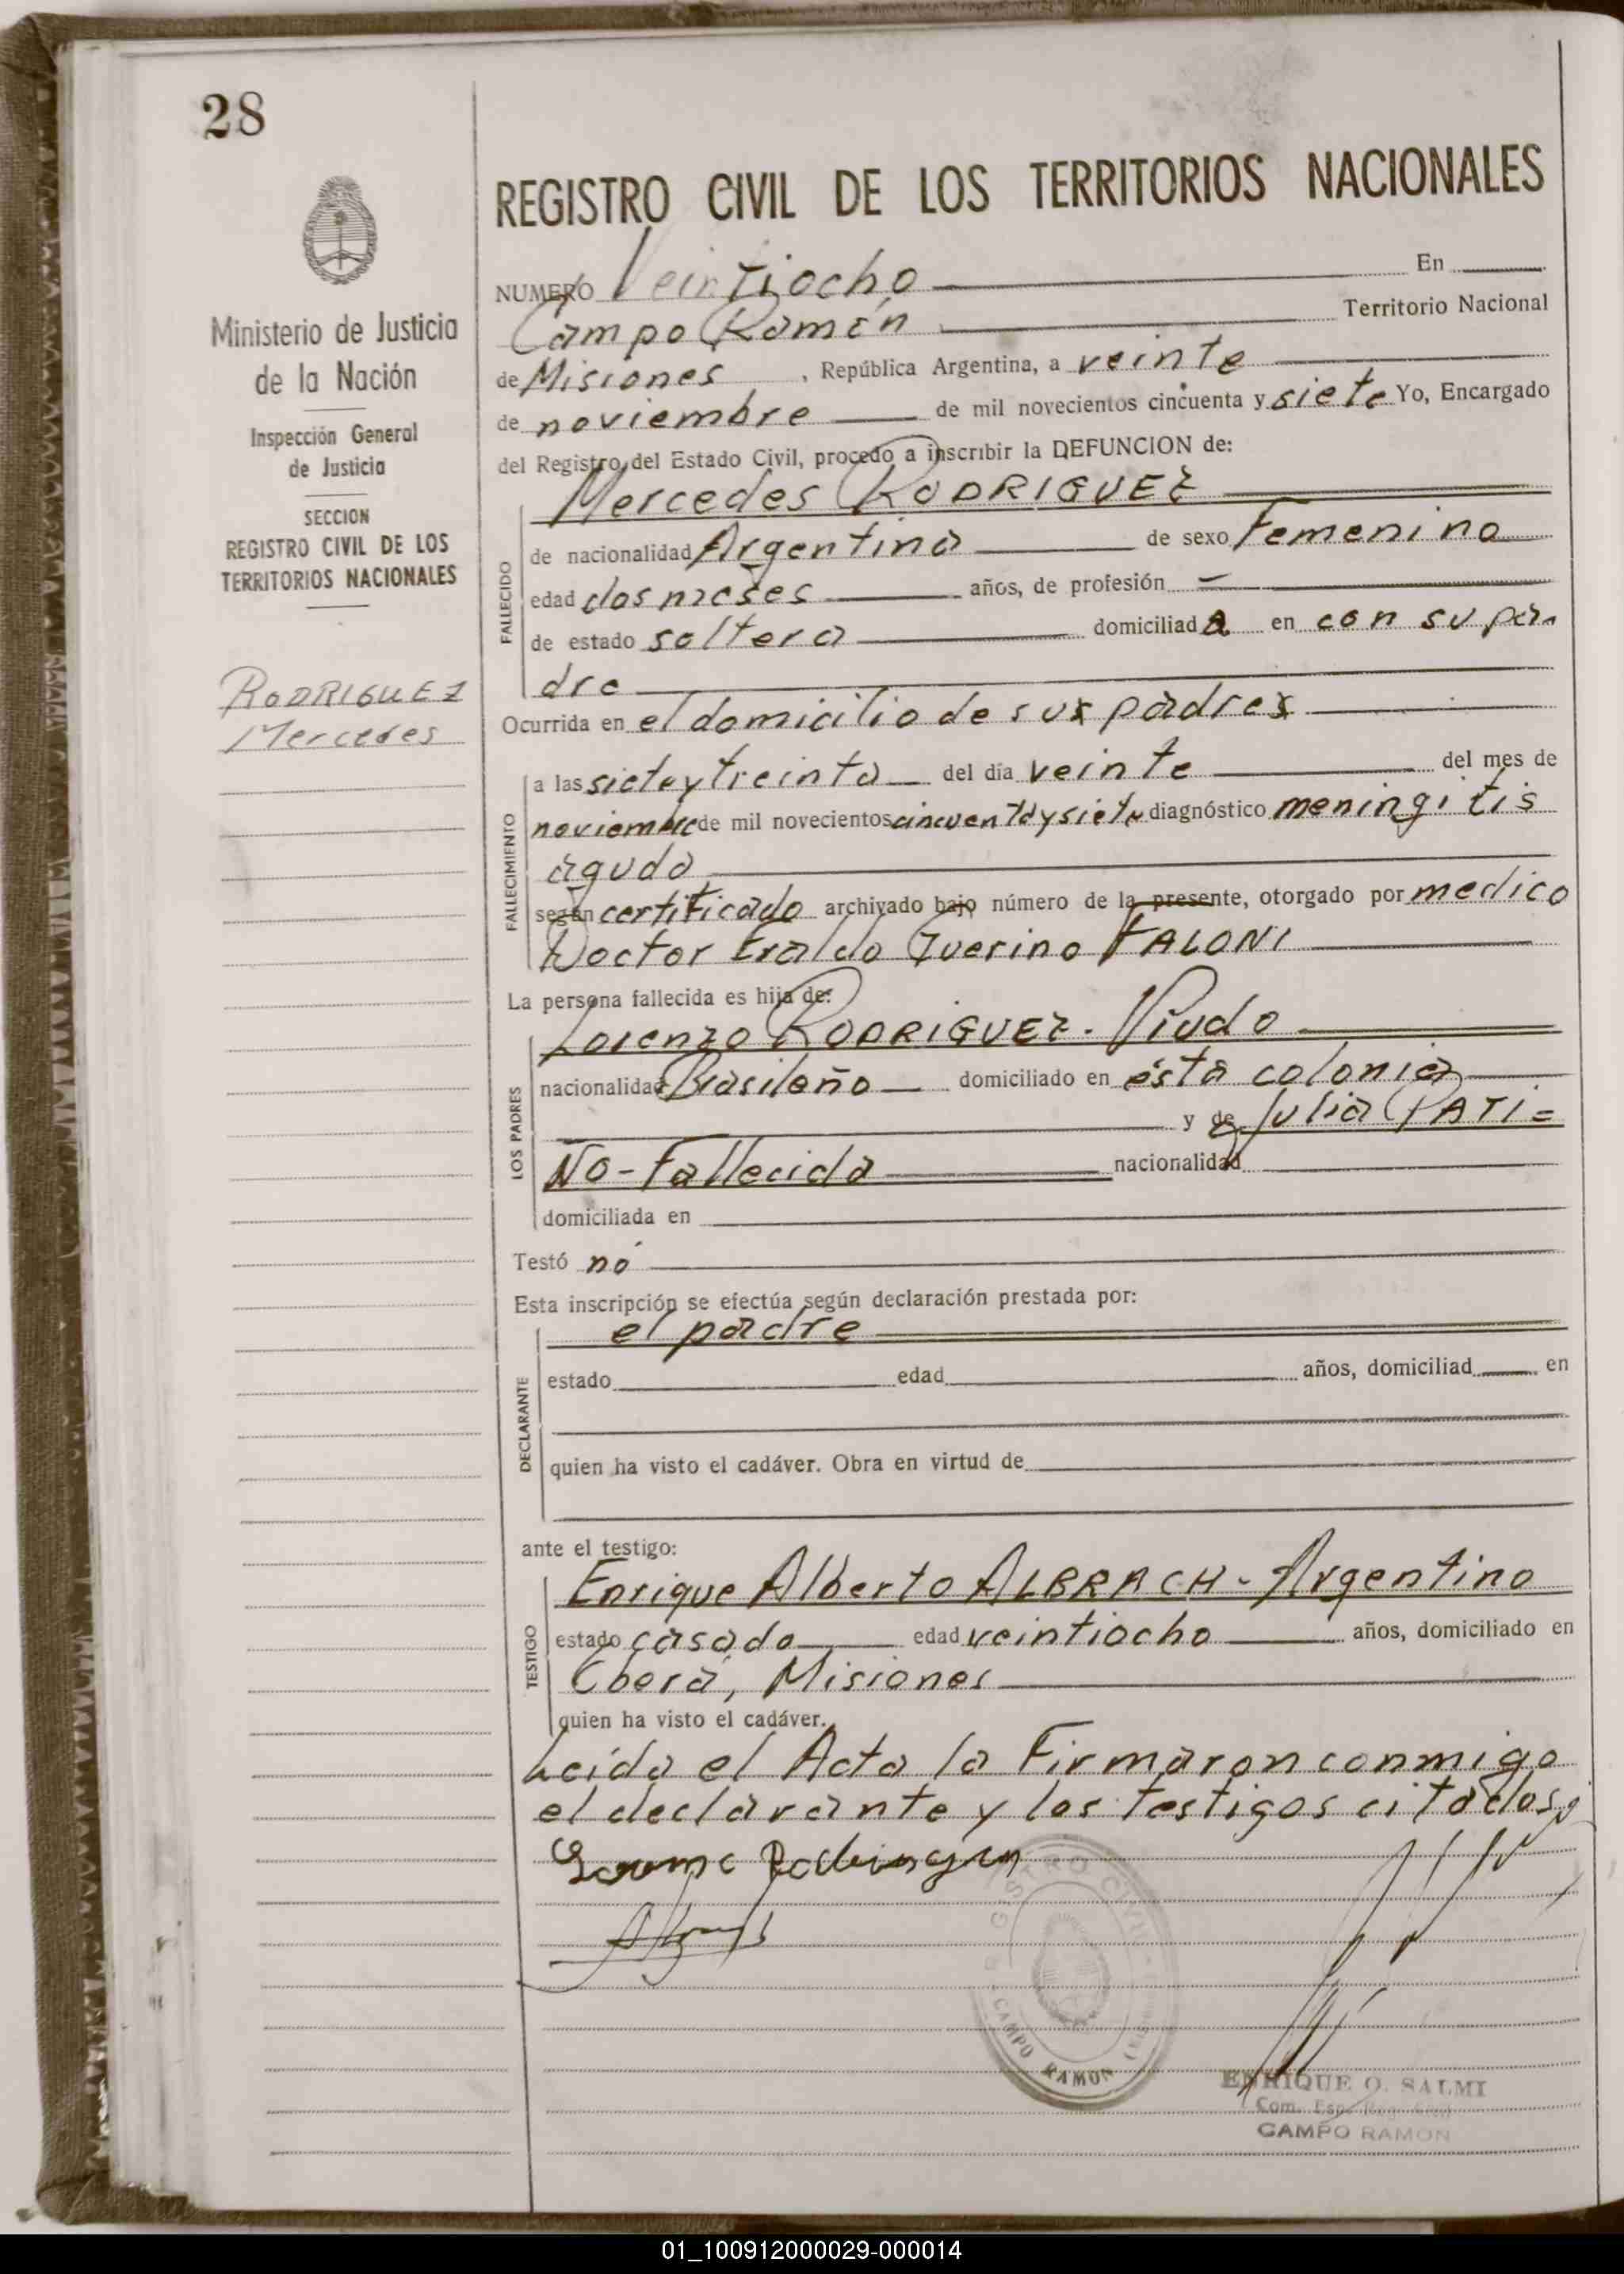 28
REGISTRO CIVIL DE LOS TERRITORIOS NACIONALES
Ministerio de Justicia
de la Nación
Inspección General
de Justicia
SECCION
REGISTRO CIVIL DE LOS
TERRITORIOS NACIONALES
RODRIGUEZ
Mercedes
NUMERO Veintiocho En
Campo Ramón Territorio Nacional
de Misiones , República Argentina, a veinte
de noviembre de mil novecientos cincuenta y siete Yo, Encargado
del Registro del Estado Civil, procedo a inscribir la DEFUNCION de:
Mercedes RODRIGUEZ
FALLECIDO
de nacionalidad Argentina de sexo Femenino
edad dos meses años, de profesión —
de estado soltera domiciliada en con su pa-
dre
Ocurrida en el domicilio de sus padres
FALLECIMIENTO
a las siete y treinta del día veinte del mes de
noviembre de mil novecientos cincuenta y siete diagnóstico meningitis
aguda
según certificado archivado bajo número de la presente, otorgado por medico
Doctor Eraldo Guerino FALONI
La persona fallecida es hija de:
Lorenzo RODRIGUEZ - Viudo
LOS PADRES
nacionalidad Brasileño domiciliado en ésta colonia
y de Julia PATI=
NO - Fallecida nacionalidad
domiciliada en
Testó no
Esta inscripción se efectúa según declaración prestada por:
el padre
DECLARANTE
estado edad años, domiciliad en
quien ha visto el cadáver. Obra en virtud de
ante el testigo:
Enrique Alberto ALBRACH - Argentino
TESTIGO
estado casado edad veintiocho años, domiciliado en
Oberá, Misiones
quien ha visto el cadáver.
Leída el Acta la Firmaron conmigo
el declarante y los testigos citados
REGISTRO CIVIL
CAMPO RAMON
ENRIQUE O. SALMI
Com. Esp. Reg. Civil
CAMPO RAMON
01_100912000029-000014